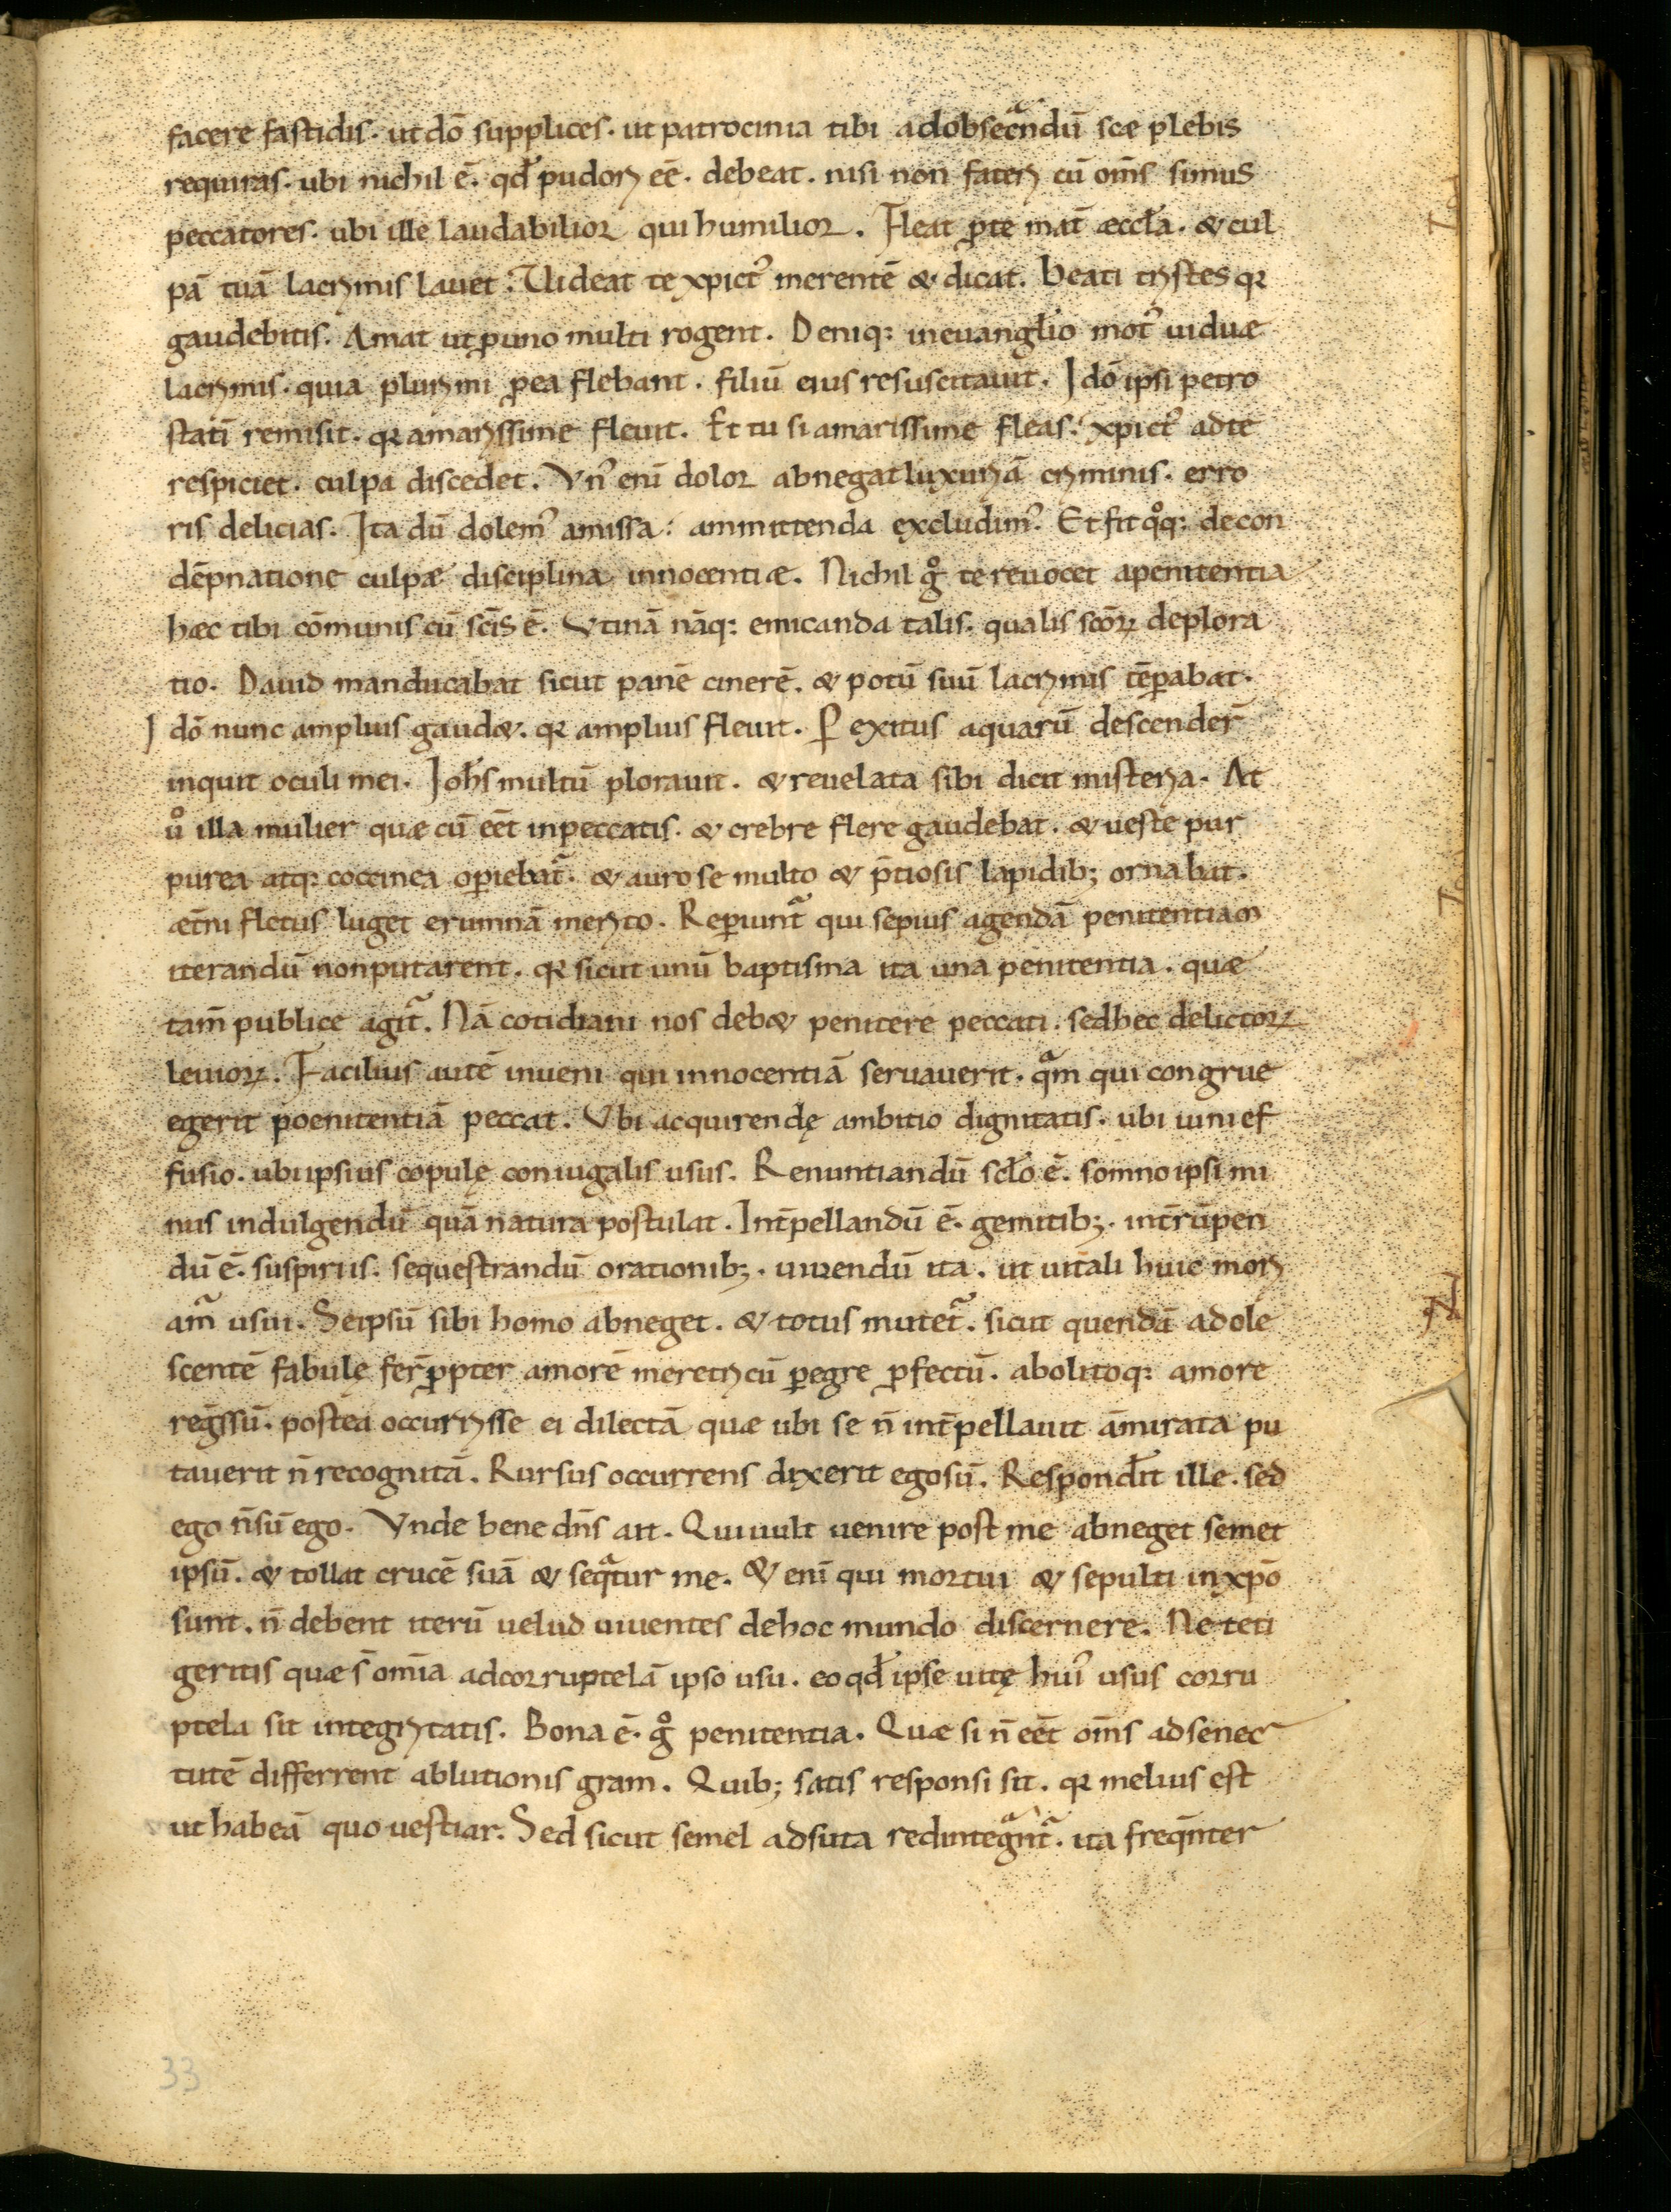 facere fastidis. ut dō supplices. ut patrocinia tibi adobsecͣndū sce plebis
requiras. ubi nichil ē. qđ pudori eē. debeat. nisi non fateri cū om̄s simus
peccatores. ubi ille laudabilior qui humilior. Fleat ꝓte mat̄ æccła. & cul
pā tuā lacrimis lauet. Uideat te xpict᾽ merentē & dicat. beati tristes qꝛ
gaudebitis. Amat ut ꝑuno multi rogent. Deniq: ineuanglio mot᾽ uiduæ
lacrimis. quia plurimi ꝑea flebant. filiū eius resuscitauit. Idō ipsi petro
statī remisit. qꝛ amarissime fleuit. Et tu si amarissime fleas. xpict᾽ adte
respiciet. culpa discedet. Vn᾽ enī dolor abnegat luxuriā criminis. erro
ris delicias. Ita dū dolem᾽ amissa: ammittenda excludim᾽. Et fit qͦq: decon
dēpnatione culpæ disciplina innocentiæ. Nichil gͦ te reuocet apenitentia
hæc tibi cōmunis cū scīs ē. Vtinā nāq: emicanda talis. qualis scōꝝ deplora
tio. Dauid manducabat sicut panē cinerē. & potū suū lacrimis tēꝑabat.
Idō nunc amplius gaud&. qꝛ amplius fleuit. Ꝑ exitus aquarū descender̄
inquit oculi mei. Ioh̄s multū plorauit. & reuelata sibi dicit misteria. At
uͦ illa mulier quæ cū eēt inpeccatis. & crebre flere gaudebat. & ueste pur
purea atq: coccinea oꝑiebatͣ. & auro se multo & p̄tiosis lapidib; ornabat.
æt̄ni fletus luget erumnā merito. Reꝑiuntͣ qui sepius agendā penitentiam
iterandū nonputarent. qꝛ sicut unū baptisma ita una penitentia. quæ
tam̄ publice agitͣ. Nā cotidiani nos deb& penitere peccati. sedhec delictoꝝ
leuioꝝ. Facilius autē inueni qui innocentiā seruauerit. qͣm qui congrue
egerit poenitentiā peccat. Vbi acquirendę ambitio dignitatis. ubi uini ef
fusio. ubi ipsius copulę coniugalis usus. Renuntiandū scło ē. somno ipsi mi
nus indulgendū quā natura postulat. Int̄pellandū ē. gemitib;. int̄rūpen
dū ē. suspiriis. sequestrandū orationib;. uiuendū ita. ut uitali huic mori
amͣ usui. Seipsū sibi homo abneget. & totus mutetͣ. sicut quendā adole
scentē fabulę fer̄ ꝓpter amorē meretricū ꝑegre ꝓfectū. abolitoq: amore
reḡssū. postea occurrisse ei dilectā quæ ubi se n̄ int̄pellauit āmirata pu
tauerit n̄ recognitā. Rursus occurrens dixerit egosū. Respondīt ille. sed
ego n̄ sū ego. Vnde bene dn̄s ait. Qui uult uenire post me abneget semet
ipsū. & tollat crucē suā & seqͣtur me. & enī qui mortui & sepulti inxpō
sunt. n̄ debent iterū uelud uiuentes dehoc mundo discernere. Ne teti
geritis quæ s̄ om̄ia adcorruptelā ipso usu. eo qđ ipse uitę hui᾽ usus corru
ptela sit integritatis. Bona ē. gͦ penitentia. Quæ si n̄ eēt om̄s adsenec
tutē differrent ablutionis gram. Quib; satis responsi sit. qꝛ melius est
ut habeā quo uestiar. Sed sicut semel adsuta redintegͣntͣ. ita freq̄nter
33